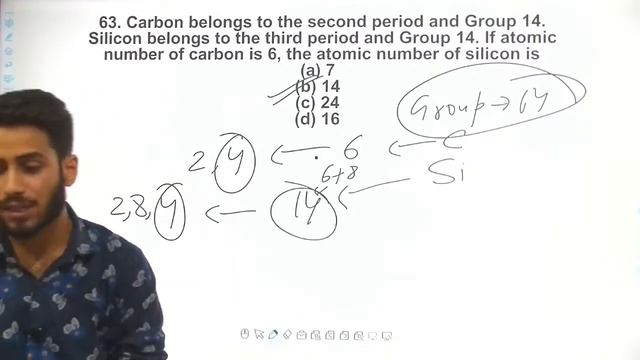 63. Carbon belongs to the second period and Group 14.
Silicon belongs to the third period and Group 14. If atomic
number of carbon is 6, the atomic number of silicon is
(a) 7
(b) 14
(c) 24
(d) 16
Group → 14
2, 4 ← 6 ← C
6+8
Si
2,8,4 ← 14 ←